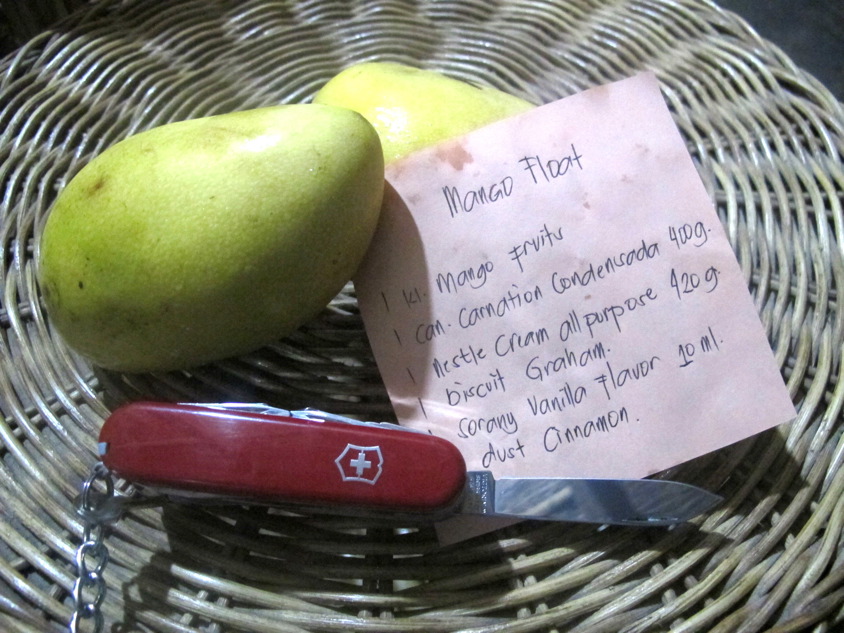 Mango Float
1 kl. Mango Fruits
1 can. Carnation Condensada 400g.
1 Nestle Cream all purpose 420 g.
1 biscuit Graham.
1 sorany Vanilla Flavor 10 ml.
dust Cinnamon.